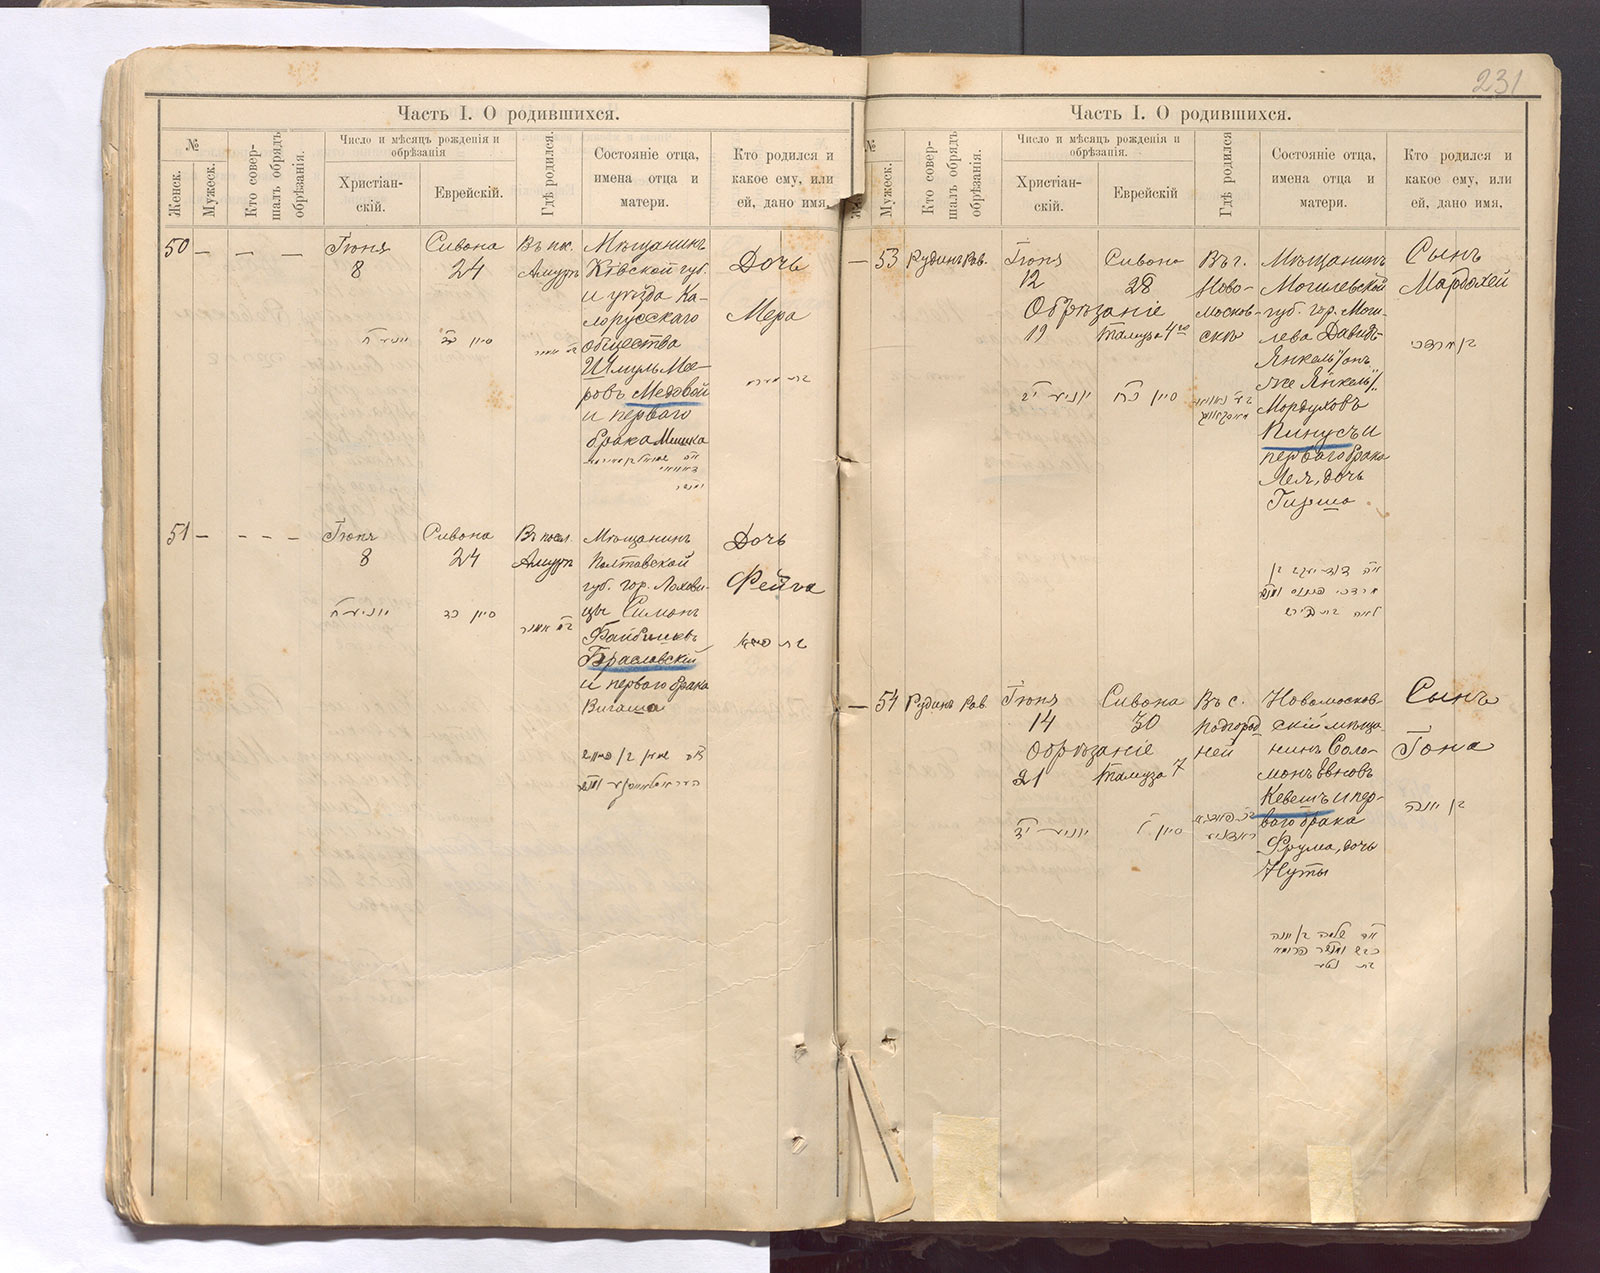 231
Часть I. О родившихся.
№
Женск.
Мужеск.
Кто совер-
шалъ обрядъ
обрѣзанія.
Число и мѣсяцъ рожденія и
обрѣзанія
Христіан-
скій.
Еврейскій.
Гдѣ родился.
Состояніе отца,
имена отца и
матери.
Кто родился и
какое ему, или
ей, дано имя.
50 — — —
Іюня
8
Сивона
24
Въ пос.
Амуръ
Мѣщанинъ
Кіевской губ.
и уѣзда Ка-
лорусскаго
общества
Шмуль Мее-
ровъ Медовой
и перваго
брака Мишка
Дочь
Мера
51 — — — —
Іюня
8
Сивона
24
Въ посел.
Амуръ
Мѣщанинъ
Полтавской
губ. гор. Лохви-
цы Симонъ
Файбишевъ
Браславскій
и перваго брака
Дочь
Фейга
Часть I. О родившихся.
№
Женск.
Мужеск.
Кто совер-
шалъ обрядъ
обрѣзанія.
Число и мѣсяцъ рожденія и
обрѣзанія.
Христіан-
скій.
Еврейскій.
Гдѣ родился
Состояніе отца,
имена отца и
матери.
Кто родился и
какое ему, или
ей, дано имя.
— 53
Рудинъ Рав.
Іюня
12
Обрѣзаніе
19
Сивона
28
Тамуза 4го
Въ г.
Ново-
москов-
скѣ
Мѣщанинъ
Могилевской
губ. гор. Моги-
лева Давидъ-
Янкель /онъ
же Янкель/
Мордуховъ
Пинусъ и
перваго брака
Лея, дочь
Гирша
Сынъ
Мардохей
בן מרדכי
סיון כח
יוניע יב
ה״ה דוד יעקב בן
מרדכי פינוס
לאה בת הירש
— 54
Рудинъ Рав.
Іюня
14
Обрѣзаніе
21
Сивона
30
Тамуза 7
Въ с.
Подгород
ней
Новомосков-
скій мѣща-
нинъ Соло-
монъ Евновъ
Кевешъ и пер-
ваго брака
Фрума, дочь
Нуты
Сынъ
Іона
בן יונה
סיון ל
יוניע יד
בת נטע